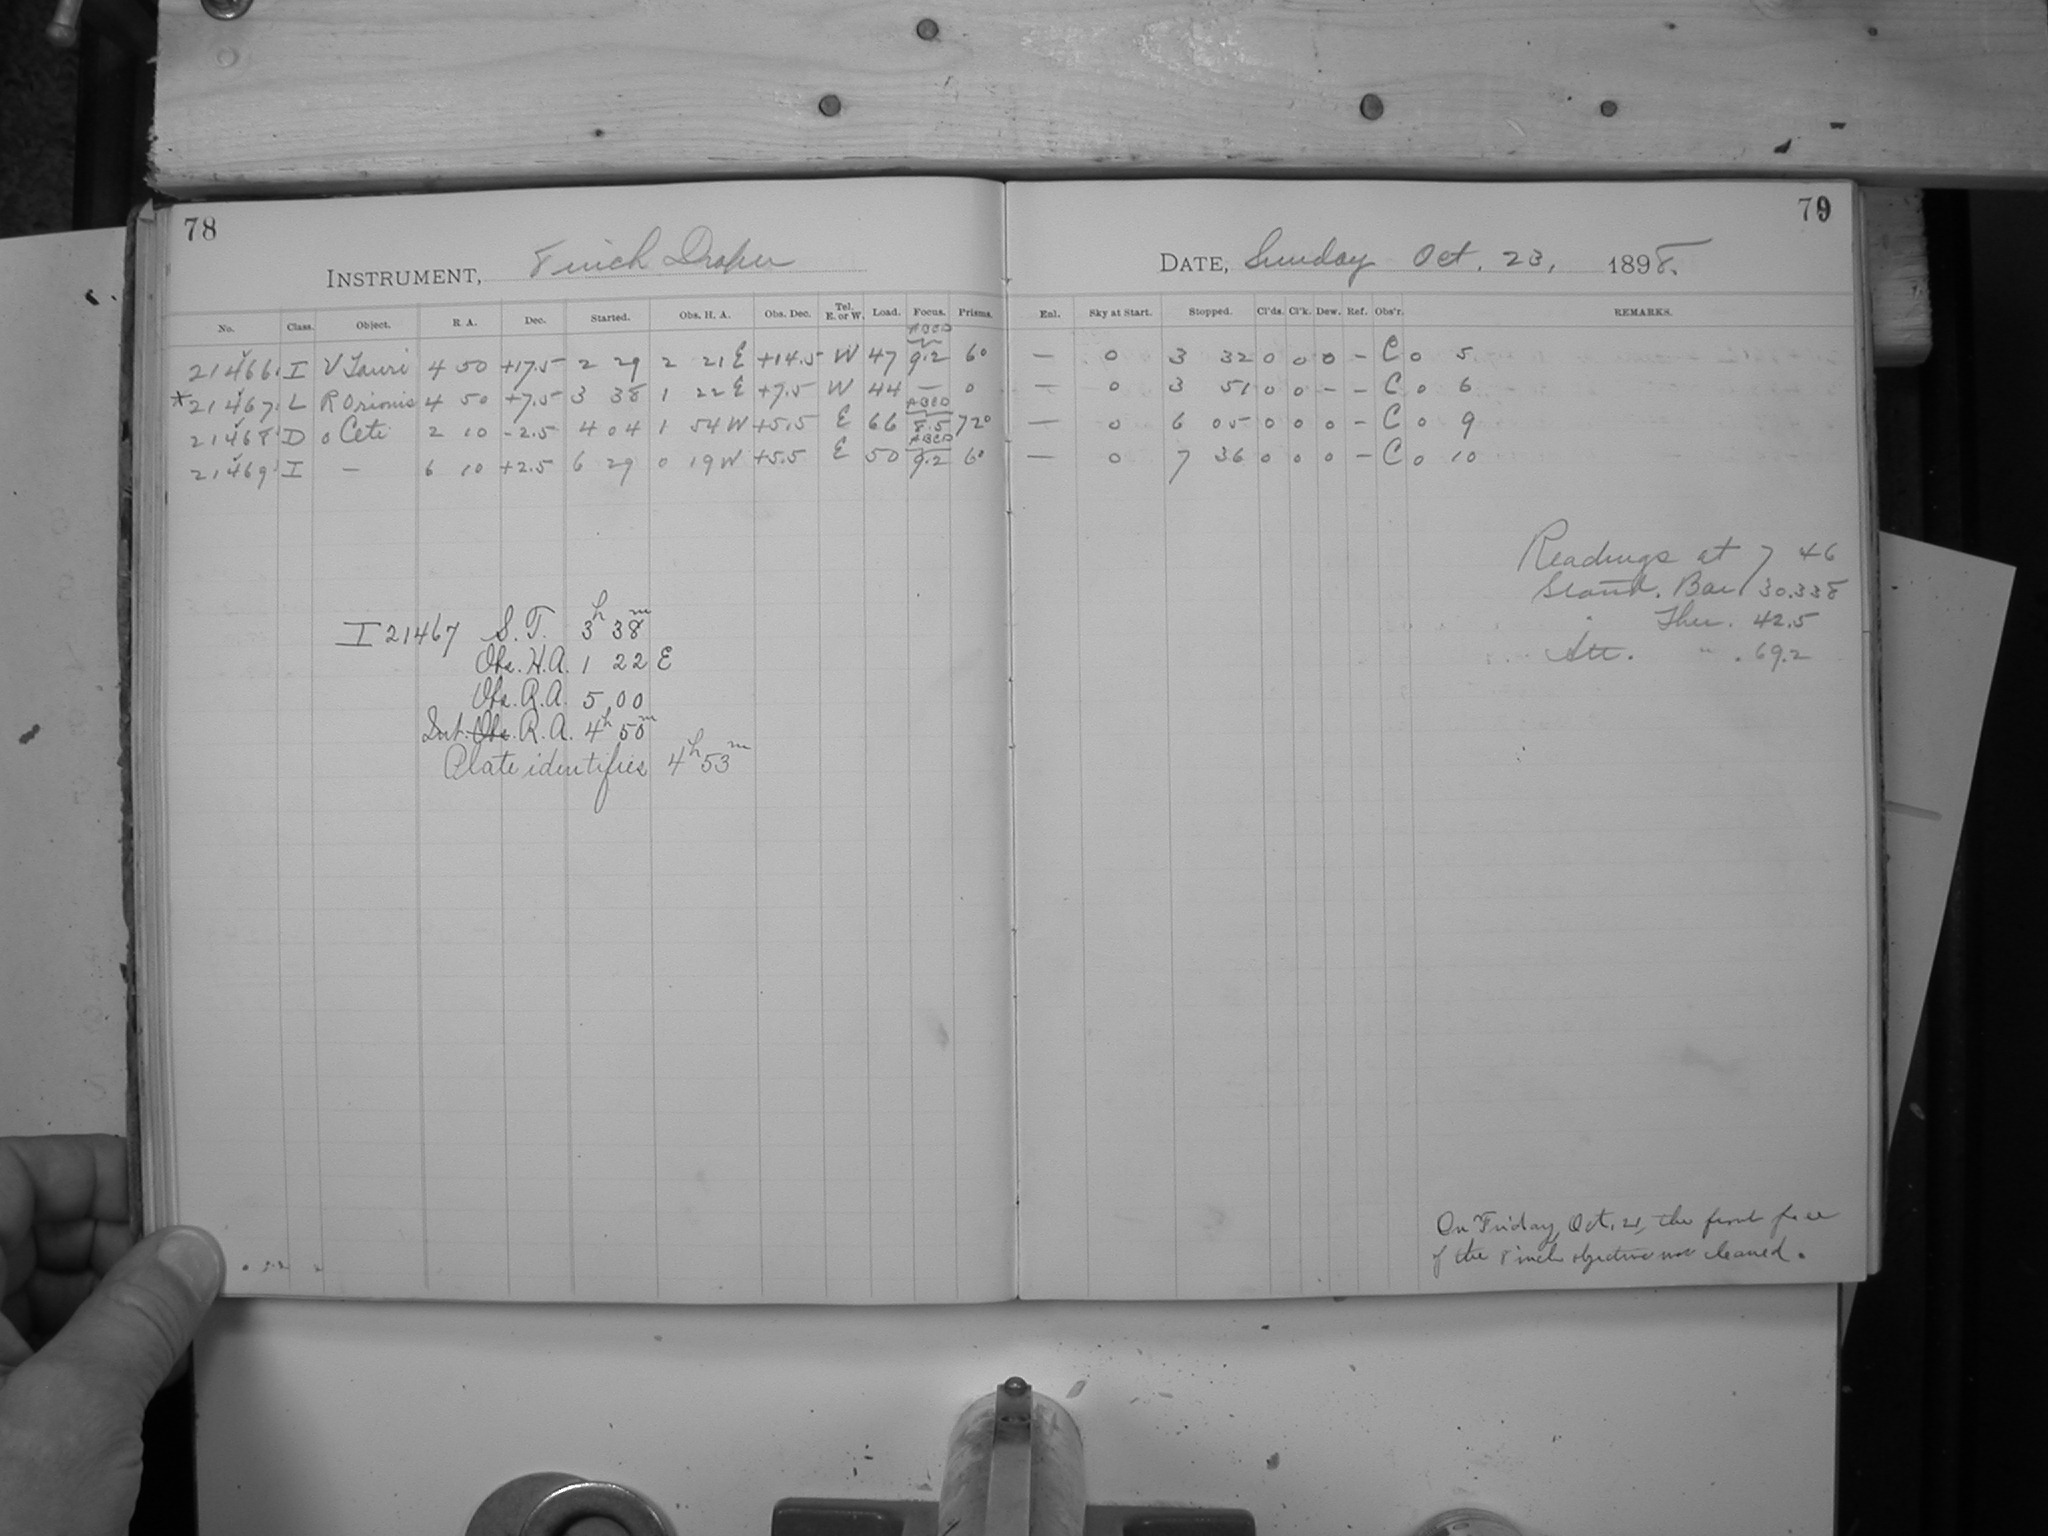 78
79
INSTRUMENT, 8 inch Draper
DATE, Sunday Oct. 23, 1898.
No. Class. Object. R. A. Dec. Started. Obs. H. A. Obs. Dec. Tel. E. or W. Load. Focus. Prisms. Enl. Sky at Start. Stopped. Cl'ds. Cl'k. Dew. Ref. Obs'r. REMARKS.
ABCD
21466 I V Tauri 4 50 +17.5 2 29 2 21 E +14.5 W 47 9.2 60 — 0 3 32 0 0 0 – C 0 5
*21467 L R Orionis 4 50 +7.5 3 38 1 22 E +7.5 W 44 — 0 — 0 3 51 0 0 – – C 0 6
ABCD
21468 D o Ceti 2 10 -2.5 4 04 1 54 W +5.5 E 66 8.5 720 — 0 6 05 0 0 0 – C 0 9
ABCD
21469 I — 6 10 +2.5 6 29 0 19 W +5.5 E 50 9.2 60 — 0 7 36 0 0 0 – C 0 10
I 21467 S. T. 3h 38m
Obs. H.A. 1 22 E
Obs. R.A. 5 00
Int. Obs. R.A. 4h 50m
Plate identifies 4h 53m
Readings at 7 46
Stand. Bar 30.338
Ther. 42.5
Att. " . 69.2
On Friday, Oct. 21, the front face
of the 8 inch objective was cleaned.